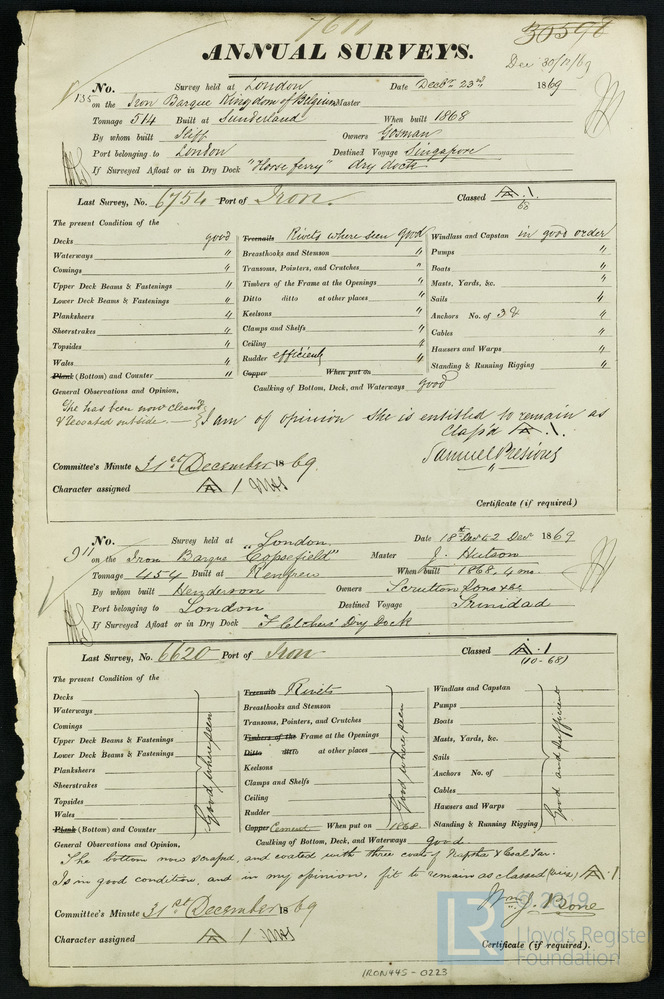 7611
30596
ANNUAL SURVEYS.
Dec 30/12/69
No. Survey held at London Date Decbr 23rd 1869
135 on the Iron Barque Kingdom of Belgium Master
Tonnage 514 Built at Sunderland When built 1868
By whom built Iliff Owners Gosman
Port belonging to London Destined Voyage Singapore
If Surveyed Afloat or in Dry Dock "Horseferry" dry dock
Last Survey, No. 6754 Port of Iron. Classed A.1.
68
The present Condition of the
Decks good Treenails Rivets where seen good Windlass and Capstan in good order
Waterways " Breasthooks and Stemson " Pumps "
Comings " Transoms, Pointers, and Crutches " Boats "
Upper Deck Beams & Fastenings " Timbers of the Frame at the Openings " Masts, Yards, &c. "
Lower Deck Beams & Fastenings " Ditto ditto at other places " Sails "
Planksheers " Keelsons " Anchors No. of 3 & "
Sheerstrakes " Clamps and Shelfs " Cables "
Topsides " Ceiling " Hawsers and Warps "
Wales " Rudder efficient Standing & Running Rigging "
Plank (Bottom) and Counter " Copper When put on
General Observations and Opinion, Caulking of Bottom, Deck, and Waterways good
She has been now cleaned
& recoated outside. I am of opinion she is entitled to remain as
Class'd A.1.
Committee's Minute 31st December 1869.
Character assigned A 1
Certificate (if required)
No. Survey held at London. Date 18th Dec to 2 Decr 1869
911 on the Iron Barque "Copsefield" Master J. Hutson
Tonnage 454 Built at Renfrew When built 1868. 4 ms
By whom built Henderson Owners Scrutton Sons & Co.
Port belonging to London Destined Voyage Trinidad
If Surveyed Afloat or in Dry Dock Fletchers' Dry Dock
Last Survey, No. 6620 Port of Iron Classed A.1
(10-68)
The present Condition of the
Decks Treenails Rivets Windlass and Capstan
Waterways Breasthooks and Stemson Pumps
Comings Transoms, Pointers, and Crutches Boats
Upper Deck Beams & Fastenings Timbers of the Frame at the Openings Masts, Yards, &c.
Lower Deck Beams & Fastenings Ditto ditto at other places Sails
Planksheers Keelsons Anchors No. of
Sheerstrakes Clamps and Shelfs Cables
Topsides Ceiling Hawsers and Warps
Wales Rudder Standing & Running Rigging
Good where seen
Good where seen
Good and sufficient
Plank (Bottom) and Counter Copper Cement When put on 1868
General Observations and Opinion, Caulking of Bottom, Deck, and Waterways good.
The bottom now scraped, and coated with three coats of Naptha & Coal Tar.
Is in good condition, and in my opinion, fit to remain as classed (viz) A.1
Wm J. Bone
Committee's Minute 31st December 1869
Character assigned A 1
Certificate (if required).
© 2019
LR Lloyd's Register
Foundation
IRON445-0223